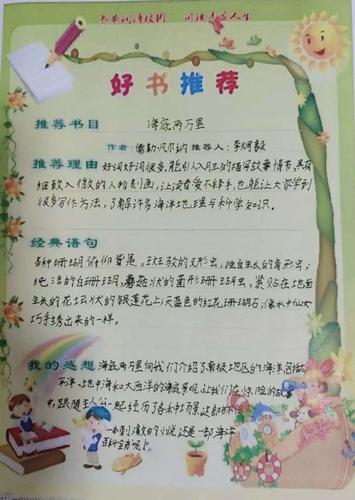 好书推荐
推荐书目 海底两万里
作者:儒勒·凡尔纳 推荐人:李炯毅
推荐理由 好词好词很多,能引人入月生的描写故事情节,具有
细致入微的人物刻画,让读者爱不释手,也能让大家学到
很多写作方法,了解许多海洋地理与科学知识。
经典语句
各种珊瑚俯仰皆是。斑驳的叉形虫;独自生长的角形虫;
纯洁的白珊瑚,蘑菇状的菌形珊瑚虫,紧贴在地面
生长的花坛状的银莲花上;天蓝色的红花珊瑚石;像水中仙女
巧手绣出来的一样。
我的感想 海底两万里向我们介绍了南极地区的海洋包括
洋、地中海和大西洋的海底景观,让我们在惊险的故事
中,跟随主人公一起经历了各种场景,这部
一本引人的小说,还是一部海洋
百科全书呢!